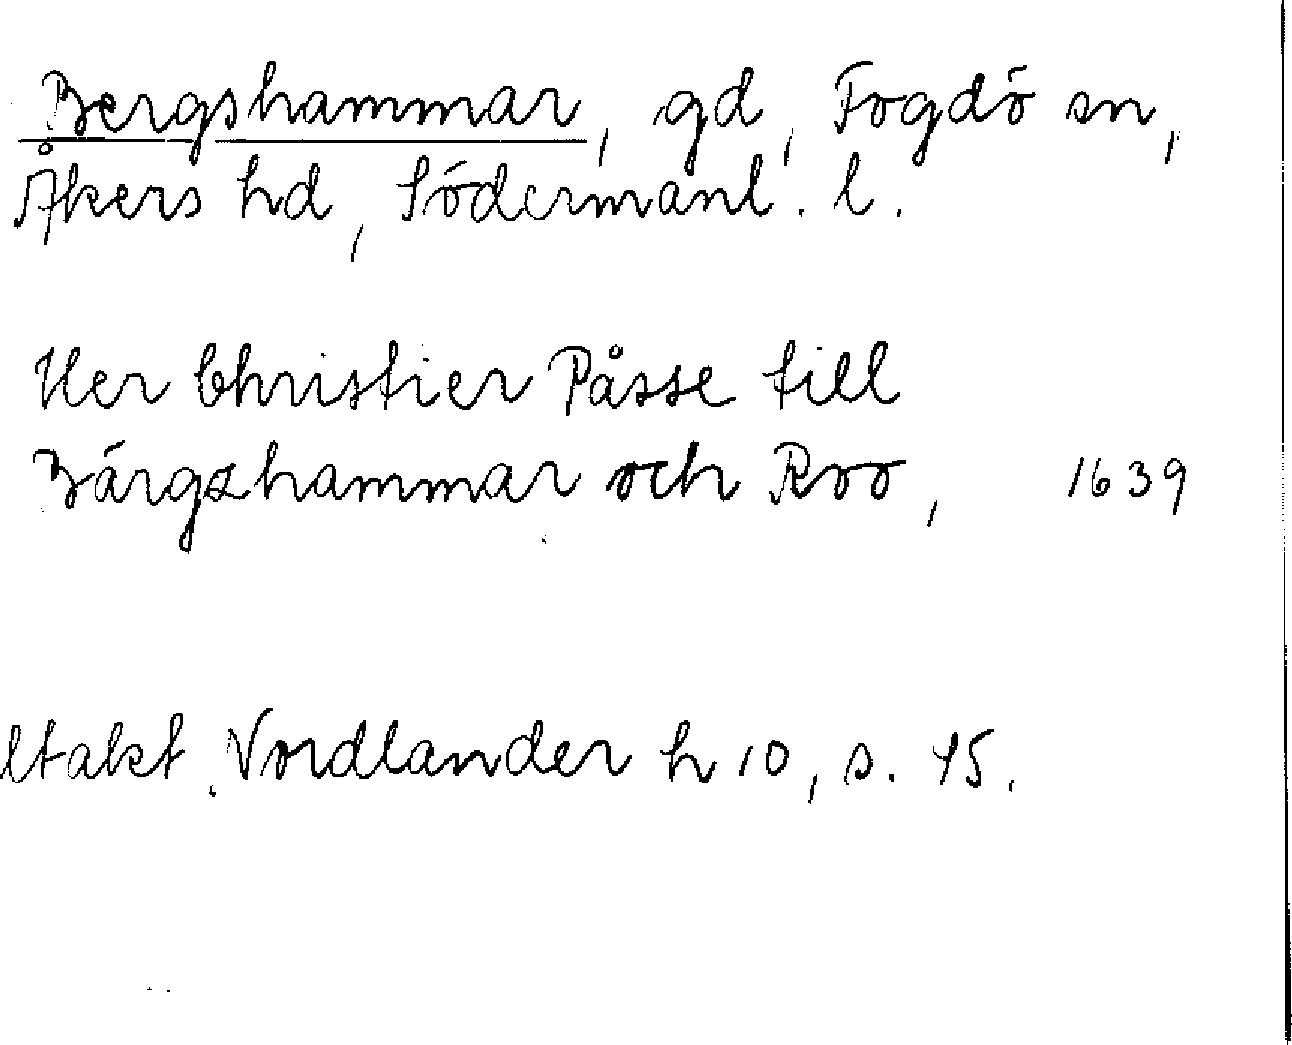 Bergshammar, gd, Fogdö sn,
Åkers hd, Södermanl. l.
Her Christier Påsse till
Bärgzhammar och Roo, 1639
Utakt. Nordlander h 10, s. 45.